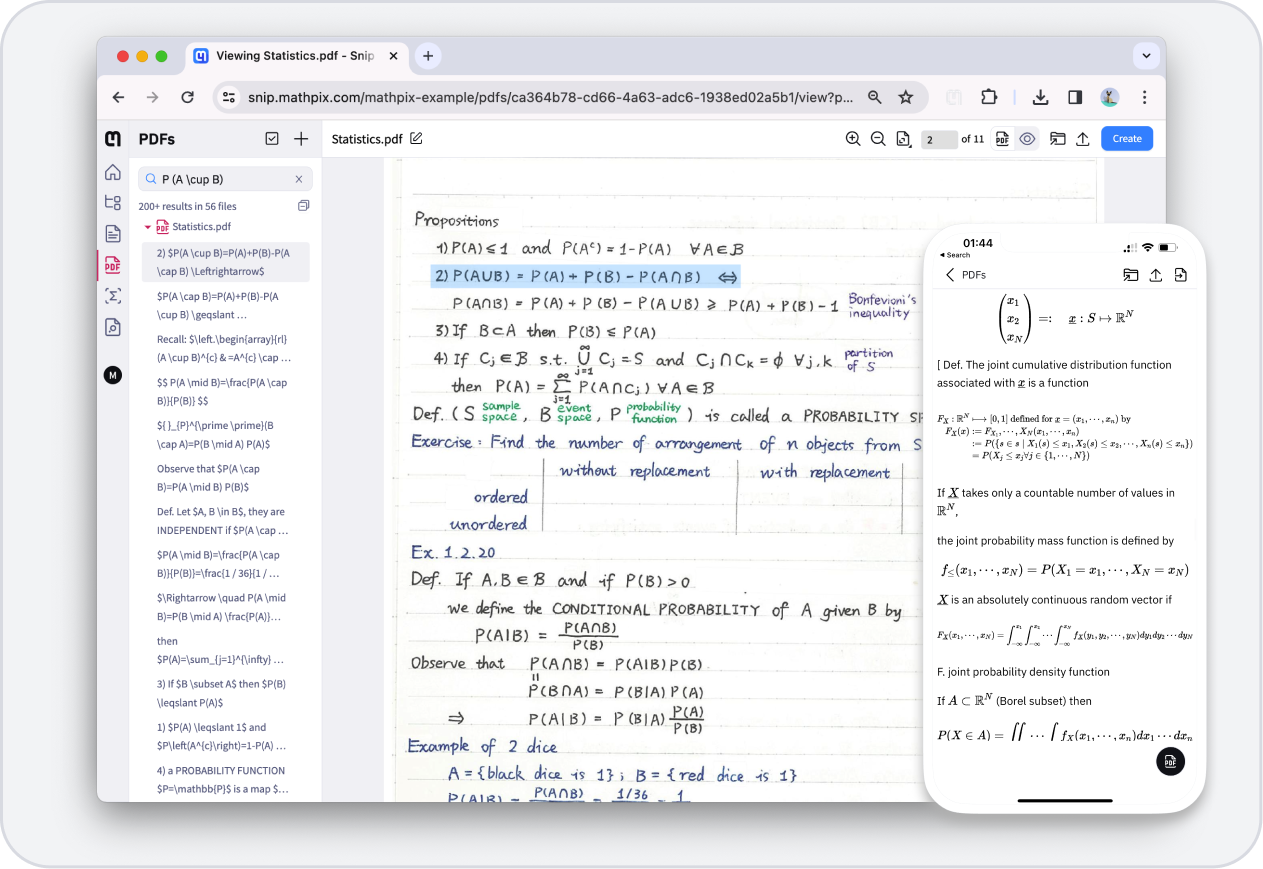 Viewing Statistics.pdf - Snip
snip.mathpix.com/mathpix-example/pdfs/ca364b78-cd66-4a63-adc6-1938ed02a5b1/view?p...
PDFs
Statistics.pdf
2 of 11
PDF
Create
P (A \cup B)
200+ results in 56 files
PDF Statistics.pdf
2) $P(A \cup B)=P(A)+P(B)-P(A
\cap B) \Leftrightarrow$
$P(A \cap B)=P(A)+P(B)-P(A
\cup B) \geqslant ...
Recall: $\left.\begin{array}{rl}
(A \cup B)^{c} & =A^{c} \cap ...
$$ P(A \mid B)=\frac{P(A \cap
B)}{P(B)} $$
${ }_{P}^{\prime \prime}(B
\cap A)=P(B \mid A) P(A)$
Observe that $P(A \cap
B)=P(A \mid B) P(B)$
Def. Let $A, B \in B$, they are
INDEPENDENT if $P(A \cap ...
$P(A \mid B)=\frac{P(A \cap
B)}{P(B)}=\frac{1 / 36}{1 / ...
$\Rightarrow \quad P(A \mid
B)=P(B \mid A) \frac{P(A)}...
then
$P(A)=\sum_{j=1}^{\infty} ...
3) If $B \subset A$ then $P(B)
\leqslant P(A)$
1) $P(A) \leqslant 1$ and
$P\left(A^{c}\right)=1-P(A) ...
4) a PROBABILITY FUNCTION
$P=\mathbb{P}$ is a map $...
PDF
M
Propositions
1) P(A) ≤ 1 and P(Aᶜ) = 1-P(A) ∀ A ∈ B
2) P(A∪B) = P(A) + P(B) - P(A∩B) ⇔
P(A∩B) = P(A) + P(B) - P(A∪B) ≥ P(A) + P(B) - 1 Bonfevioni's inequality
3) If B⊂A then P(B) ≤ P(A)
4) If Cj ∈ B s.t. ∞∪j=1 Cj = S and Cj ∩ Ck = ϕ ∀ j,k partition of S
then P(A) = ∞∑j=1 P(A∩Cj) ∀ A ∈ B
Def. (S sample space, B event space, P probability function) is called a PROBABILITY SP
Exercise: Find the number of arrangement of n objects from S
without replacement with replacement
ordered
unordered
Ex. 1.2.20
Def. If A,B ∈ B and if P(B) > 0
we define the CONDITIONAL PROBABILITY of A given B by
P(A|B) = P(A∩B) / P(B)
Observe that P(A∩B) = P(A|B) P(B)
=
P(B∩A) = P(B|A) P(A)
⇒ P(A|B) = P(B|A) P(A) / P(B)
Example of 2 dice
A = {black dice is 1} ; B = {red dice is 1}
P(A|B) = P(A∩B) = 1/36 = 1
01:44
Search
PDFs
(x₁
x₂
x_N) =: x : S ↦ ℝᴺ
[ Def. The joint cumulative distribution function
associated with x is a function
F_X : ℝᴺ ⟼ [0, 1] defined for x = (x₁, ⋯, xₙ) by
F_X(x) := F_X₁, ⋯, X_N(x₁, ⋯, xₙ)
:= P({s ∈ s | X₁(s) ≤ x₁, X₂(s) ≤ x₂, ⋯, Xₙ(s) ≤ xₙ})
= P(X_j ≤ x_j∀j ∈ {1, ⋯, N})
If X takes only a countable number of values in
ℝᴺ,
the joint probability mass function is defined by
f_≤(x₁, ⋯, x_N) = P(X₁ = x₁, ⋯, X_N = x_N)
X is an absolutely continuous random vector if
F_X(x₁, ⋯, x_N) = ∫_{-∞}^{x₁} ∫_{-∞}^{x₂} ⋯ ∫_{-∞}^{x_N} f_X(y₁, y₂, ⋯, y_N)dy₁dy₂ ⋯ dy_N
F. joint probability density function
If A ⊂ ℝᴺ (Borel subset) then
P(X ∈ A) = ∬ ⋯ ∫ f_X(x₁, ⋯, xₙ)dx₁ ⋯ dxₙ
PDF